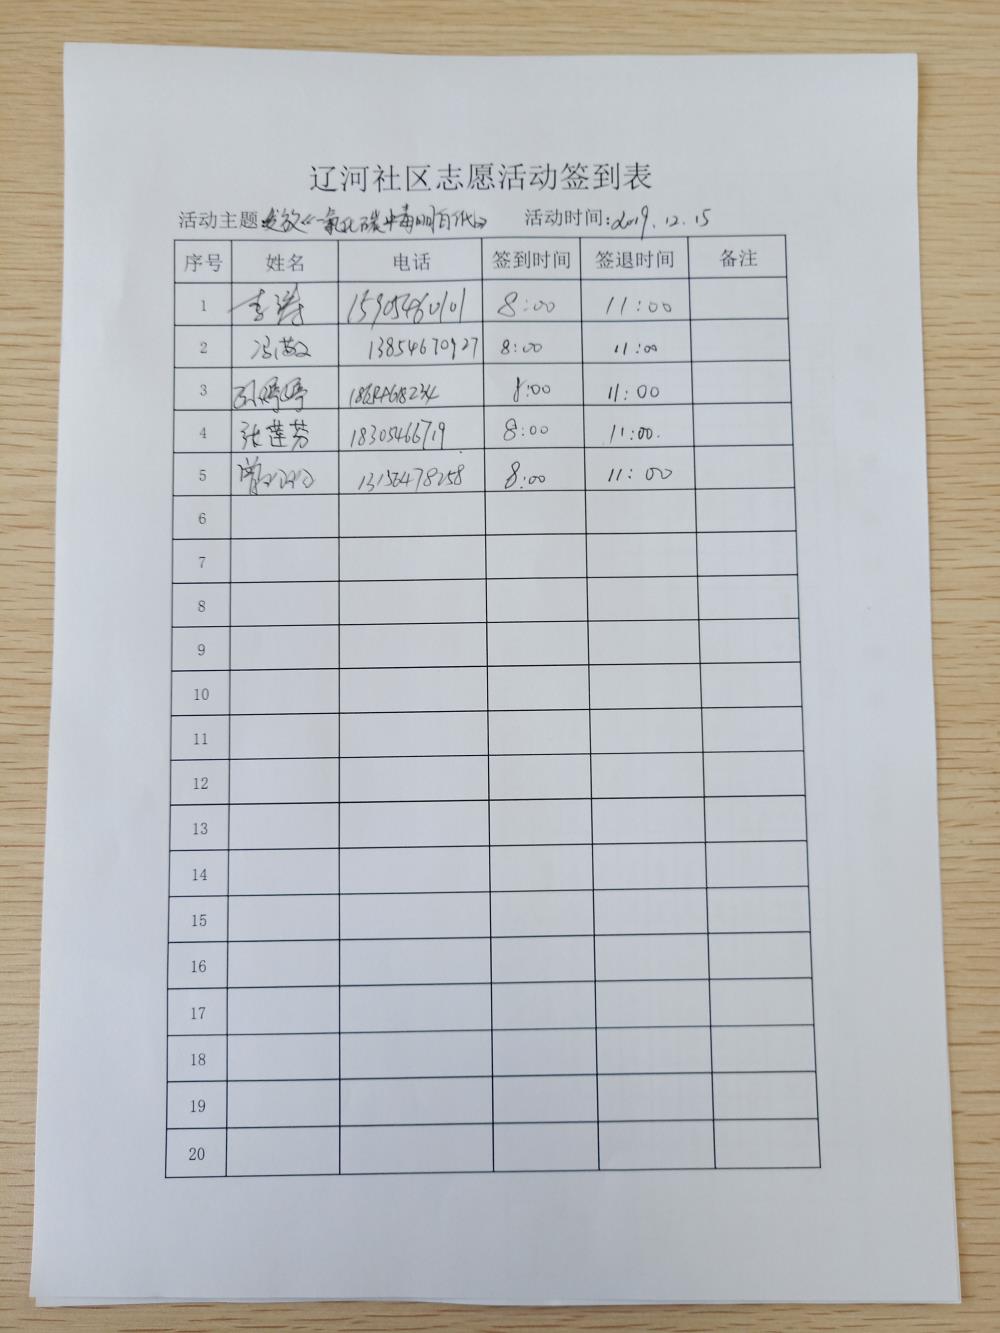 辽河社区志愿活动签到表
活动主题:发放《一氧化碳中毒明白纸》 活动时间:2019.12.15
序号 姓名 电话 签到时间 签退时间 备注
1 李涛 15905460101 8:00 11:00
2 13854670927 8:00 11:00
3 孙婷婷 8:00 11:00
4 张莲芬 18305466719 8:00 11:00.
5 13156478258 8:00 11:00
6
7
8
9
10
11
12
13
14
15
16
17
18
19
20